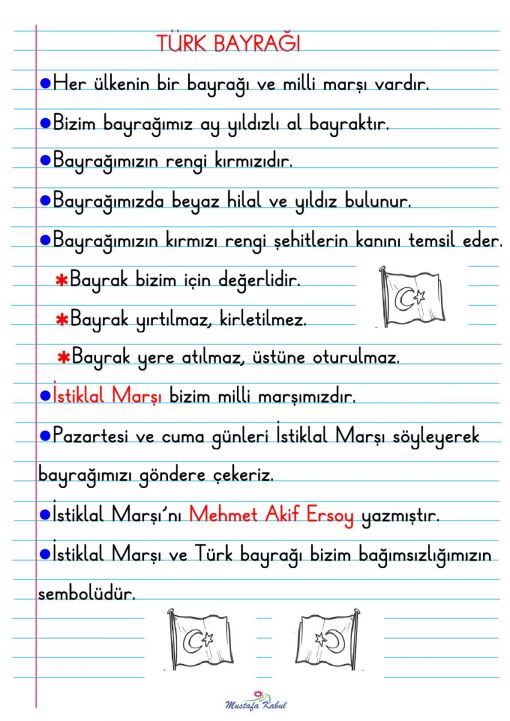 TÜRK BAYRAĞI
●Her ülkenin bir bayrağı ve milli marşı vardır.
●Bizim bayrağımız ay yıldızlı al bayraktır.
●Bayrağımızın rengi kırmızıdır.
●Bayrağımızda beyaz hilal ve yıldız bulunur.
●Bayrağımızın kırmızı rengi şehitlerin kanını temsil eder.
✱Bayrak bizim için değerlidir.
✱Bayrak yırtılmaz, kirletilmez.
✱Bayrak yere atılmaz, üstüne oturulmaz.
●İstiklal Marşı bizim milli marşımızdır.
●Pazartesi ve cuma günleri İstiklal Marşı söyleyerek
bayrağımızı göndere çekeriz.
●İstiklal Marşı’nı Mehmet Akif Ersoy yazmıştır.
●İstiklal Marşı ve Türk bayrağı bizim bağımsızlığımızın
sembolüdür.
Mustafa Kabul